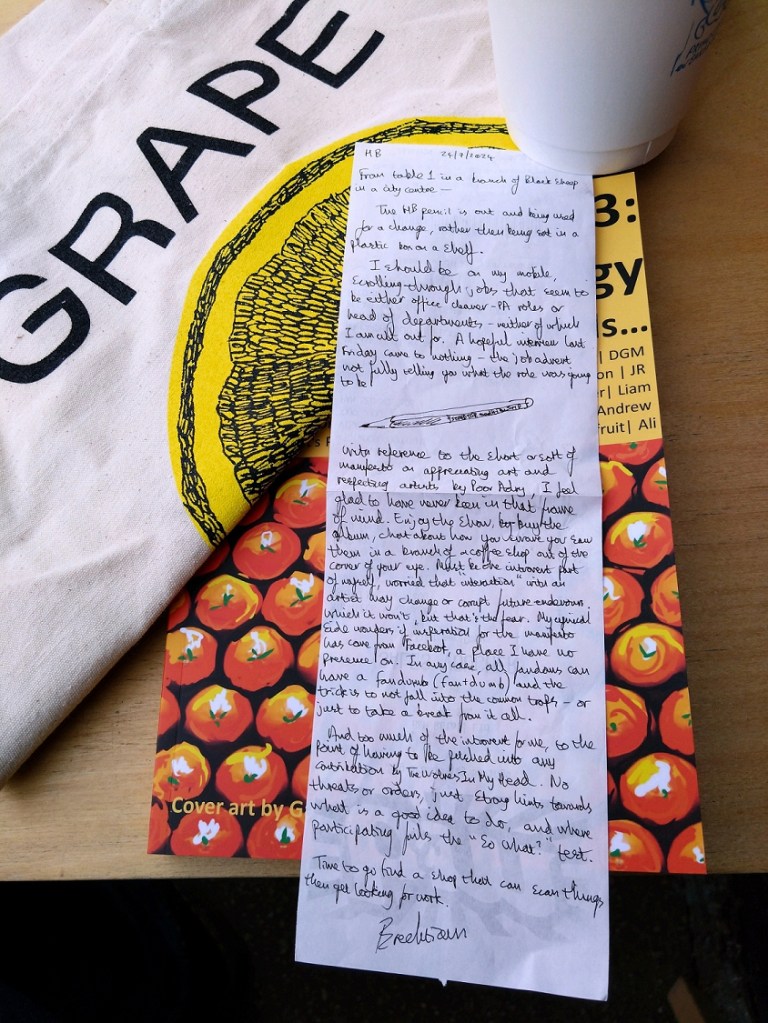 GRAPE
3:
gy
ns...
| DGM
on | JR
r| Liam
Andrew
fruit| Ali
HB 24/7/2024
From table 1 in a branch of Black Sheep
in a city centre —
The HB pencil is out and being used
for a change, rather than being sat in a
plastic box on a shelf.
I should be on my mobile,
scrolling through jobs that seem to
be either office cleaner-PA roles or
head of departments - neither of which
I am cut out for. A hopeful interview last
Friday came to nothing - the job advert
not fully telling you what the role was going
to be
With reference to the short
manifesto on appreciating art and
respecting artists by Poor Adny, I feel
glad to have never been in that frame
of mind. Enjoy the show, buy the
album, chat about how you swore you saw
them in a branch of a coffee shop out of the
corner of your eye. Must be the introvert part
of myself, worried that interaction with an
artist may change or corrupt future endeavours,
which it won't, but that's the fear. My cynical
side wonders if inspiration for the manifesto
has come from Facebook, a place I have no
presence on. In any case, all fandoms can
have a fandumb (fan+dumb) and the
trick is to not fall into the common traps - or
just to take a break from it all.
And too much of the introvert for me, to the
point of having to be pushed into any
contribution by The Wolves In My Head. No
threats or orders, just strong hints towards
what is a good idea to do, and where
participating fails the "So what?" test.
Time to go find a shop that can scan things
then get looking for work.
Cover art by G